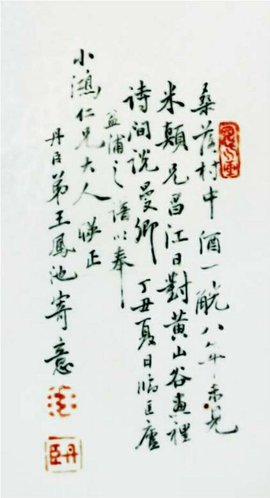 桑落村中酒一觥八年未見
米顛兄昌江日對黃山谷畫裡
诗间說曼卿 丁丑夏日临匡廬
盆浦之以奉
小鴻仁兄大人 正
丹臣弟王鳳池寄意